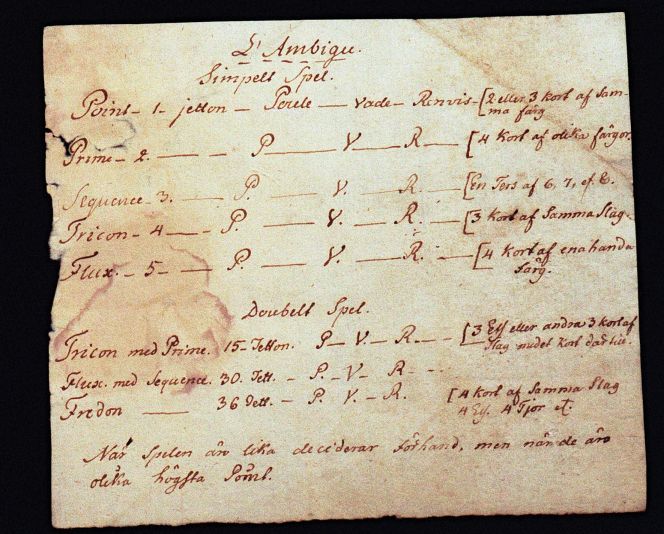 L'Ambigu.
Simpelt Spel.
Point - 1 - jetton - Poule - Vade - Renvis - [2 eller 3 kort af Sam-
ma färg
Prime - 2. - P - V. - R - [4 kort af olika färgor.
Sequence 3. - P. - V. - R. - [En Ters af 6, 7, et 8.
Tricon - 4 - P. - V. - R. - [3 kort af Samma Slag.
Flux. - 5 - P. - V. - R. - [4 kort af enahanda
färg.
Doubelt Spel.
Tricon med Prime. 15 - Jetton. P - V - R - [3 Ess eller andra 3 kort af
Slag kort
Flux. med Sequence. 30. Jett. - P. - V - R -
Fredon - 36 Jett. - P. V. - R. [4 kort af Samma Slag
4 Ess. 4 Fjor etc.
När Spelen äro lika deciderar förhand, men när de äro
olika högsta Point.